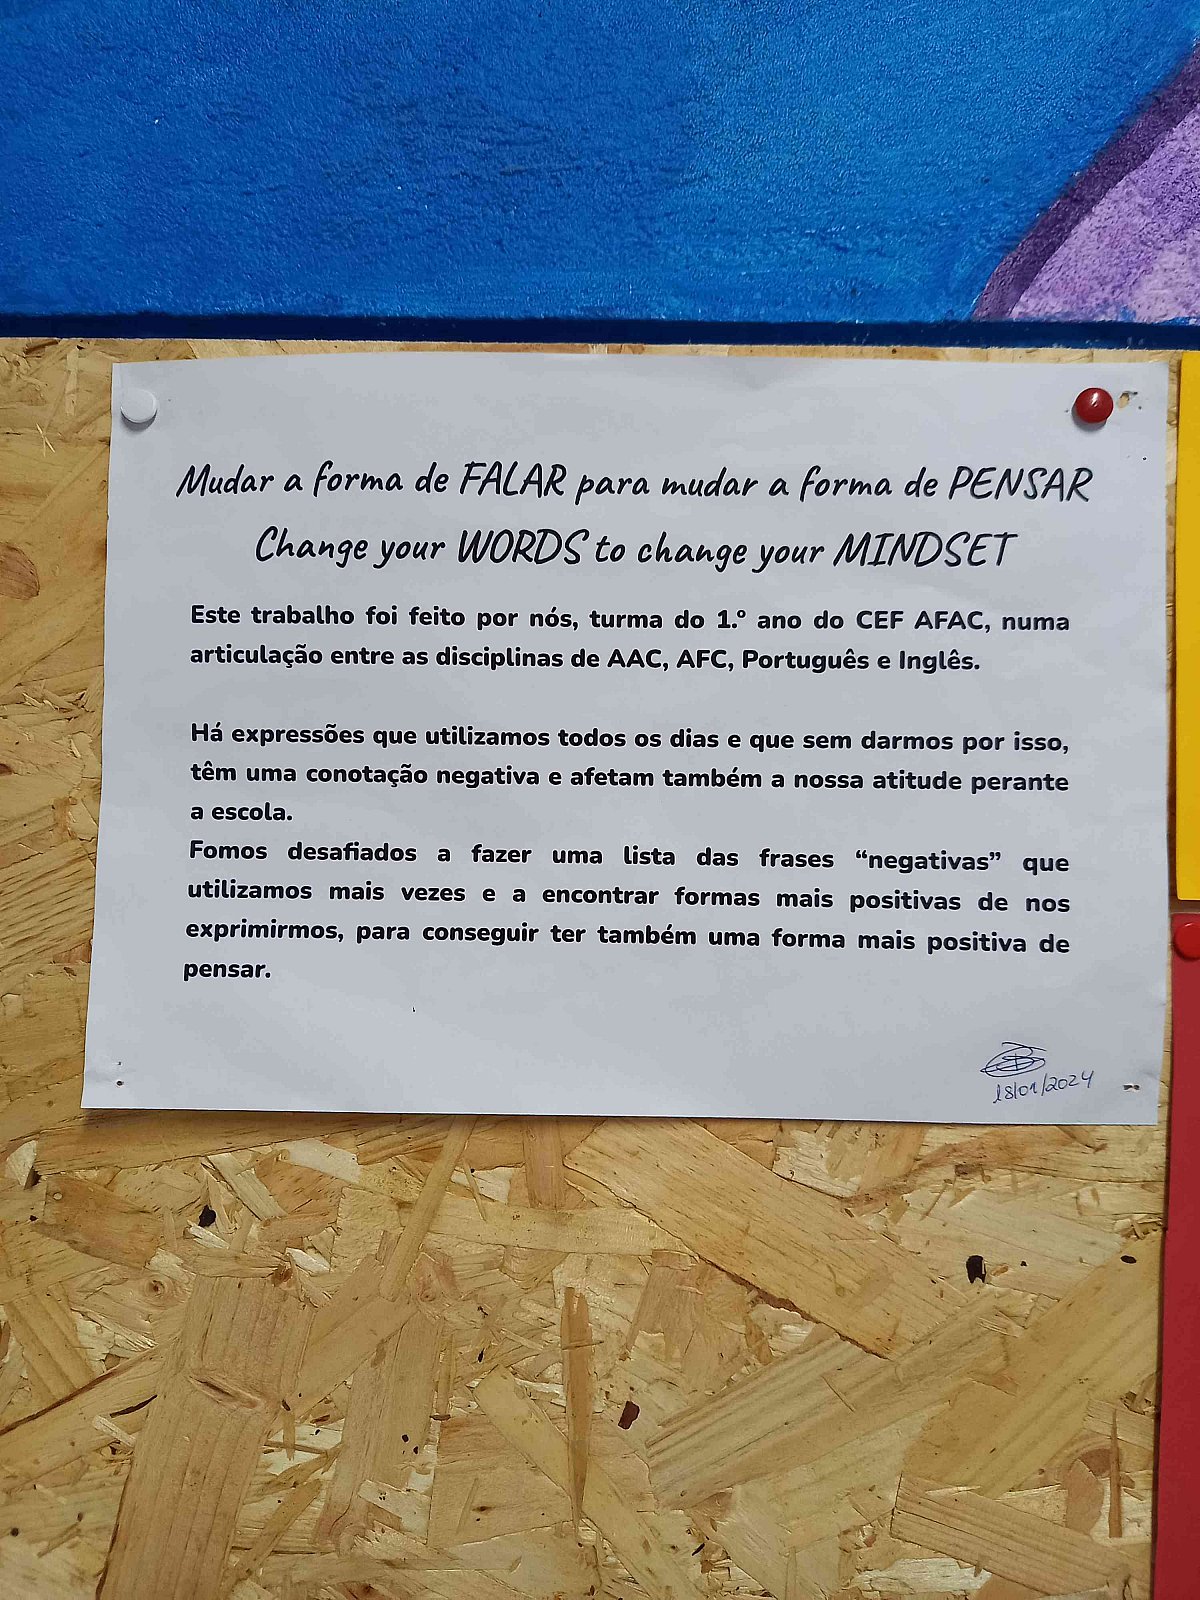 Mudar a forma de FALAR para mudar a forma de PENSAR
Change your WORDS to change your MINDSET
Este trabalho foi feito por nós, turma do 1.º ano do CEF AFAC, numa
articulação entre as disciplinas de AAC, AFC, Português e Inglês.
Há expressões que utilizamos todos os dias e que sem darmos por isso,
têm uma conotação negativa e afetam também a nossa atitude perante
a escola.
Fomos desafiados a fazer uma lista das frases “negativas” que
utilizamos mais vezes e a encontrar formas mais positivas de nos
exprimirmos, para conseguir ter também uma forma mais positiva de
pensar.
18/01/2024